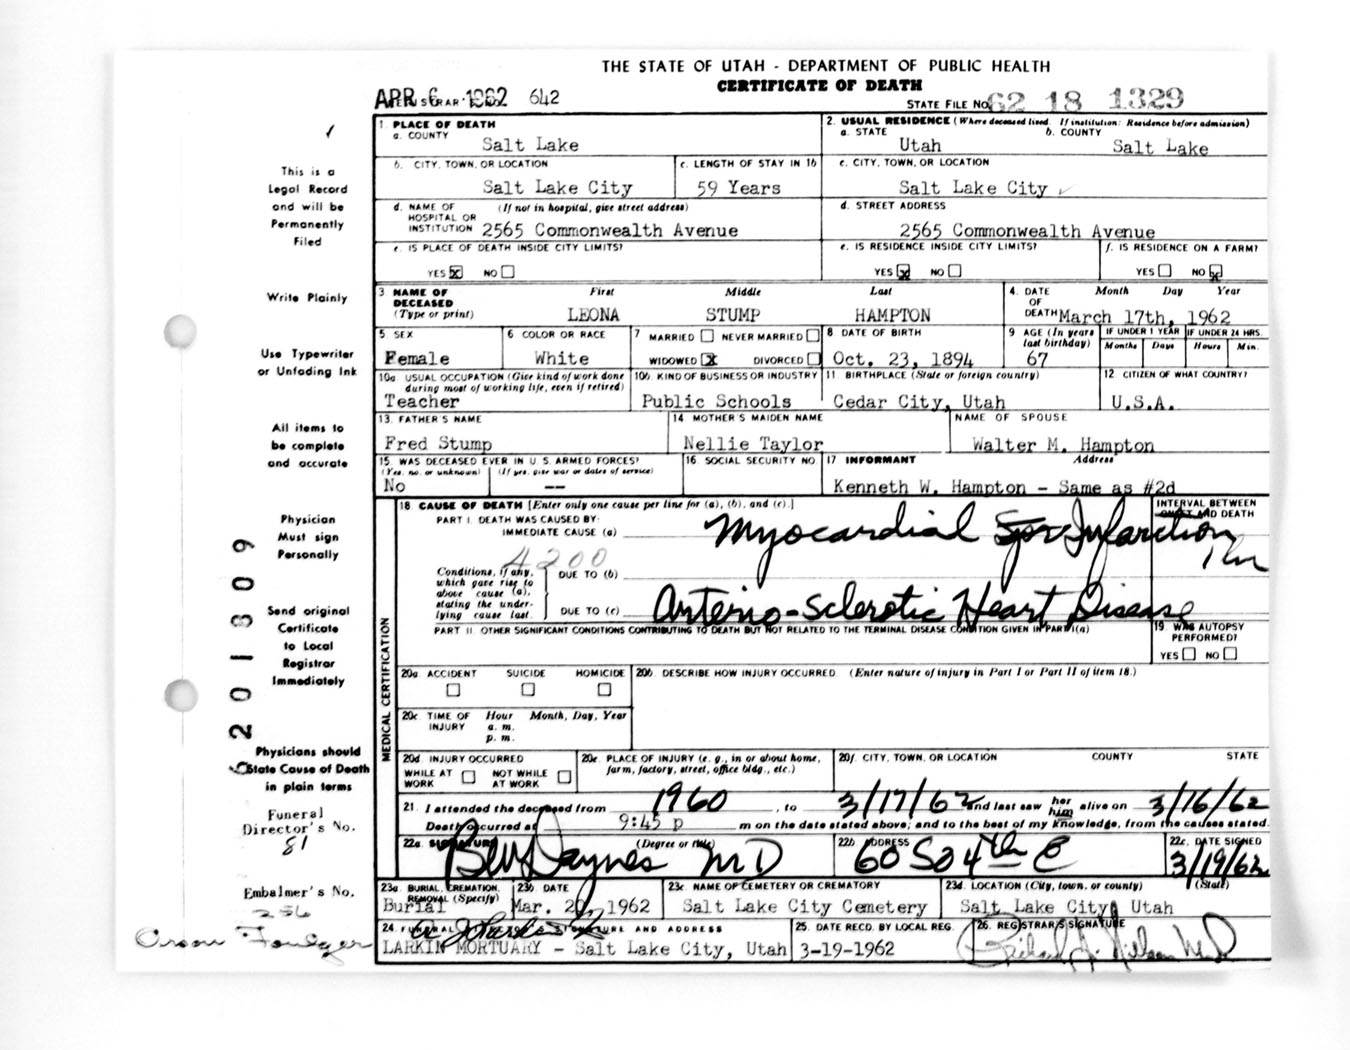 THE STATE OF UTAH - DEPARTMENT OF PUBLIC HEALTH
CERTIFICATE OF DEATH
APR 6 1962 642
STATE FILE No. 62 18 1329
This is a
Legal Record
and will be
Permanently
Filed
Write Plainly
Use Typewriter
or Unfading Ink
All items to
be complete
and accurate
Physician
Must sign
Personally
Send original
Certificate
to Local
Registrar
Immediately
Physicians should
State Cause of Death
in plain terms
Funeral
Director's No.
81
Embalmer's No.
256
2 0 1 309
1. PLACE OF DEATH
a. COUNTY
Salt Lake
2. USUAL RESIDENCE (Where deceased lived. If institution: Residence before admission)
a. STATE b. COUNTY
Utah Salt Lake
b. CITY, TOWN, OR LOCATION c. LENGTH OF STAY IN 1b c. CITY, TOWN, OR LOCATION
Salt Lake City 59 Years Salt Lake City
d. NAME OF (If not in hospital, give street address)
HOSPITAL OR
INSTITUTION 2565 Commonwealth Avenue
d. STREET ADDRESS
2565 Commonwealth Avenue
e. IS PLACE OF DEATH INSIDE CITY LIMITS? e. IS RESIDENCE INSIDE CITY LIMITS? f. IS RESIDENCE ON A FARM?
YES X NO YES X NO YES NO X
3 NAME OF DECEASED (Type or print) First Middle Last
LEONA STUMP HAMPTON
4. DATE OF DEATH Month Day Year
March 17th, 1962
5 SEX 6 COLOR OR RACE 7 MARRIED NEVER MARRIED 8 DATE OF BIRTH 9 AGE (In years last birthday) IF UNDER 1 YEAR IF UNDER 24 HRS.
Months Days Hours Min.
Female White WIDOWED X DIVORCED Oct. 23, 1894 67
10a. USUAL OCCUPATION (Give kind of work done during most of working life, even if retired) 10b. KIND OF BUSINESS OR INDUSTRY 11 BIRTHPLACE (State or foreign country) 12. CITIZEN OF WHAT COUNTRY?
Teacher Public Schools Cedar City, Utah U.S.A.
13. FATHER'S NAME 14 MOTHER'S MAIDEN NAME NAME OF SPOUSE
Fred Stump Nellie Taylor Walter M. Hampton
15. WAS DECEASED EVER IN U.S. ARMED FORCES? 16 SOCIAL SECURITY NO 17 INFORMANT Address
(Yes, no. or unknown) (If yes, give war or dates of service)
No -- Kenneth W. Hampton - Same as #2d
MEDICAL CERTIFICATION
18 CAUSE OF DEATH [Enter only one cause per line for (a), (b), and (c).]
INTERVAL BETWEEN ONSET AND DEATH
PART I. DEATH WAS CAUSED BY:
IMMEDIATE CAUSE (a) Myocardial Infarction
4200
Conditions, if any, which gave rise to above cause (a), stating the underlying cause last.
DUE TO (b)
DUE TO (c) Arterio-Sclerotic Heart Disease
PART II. OTHER SIGNIFICANT CONDITIONS CONTRIBUTING TO DEATH BUT NOT RELATED TO THE TERMINAL DISEASE CONDITION GIVEN IN PART I(a)
19. WAS AUTOPSY PERFORMED?
YES NO
20a. ACCIDENT SUICIDE HOMICIDE 20b. DESCRIBE HOW INJURY OCCURRED. (Enter nature of injury in Part I or Part II of item 18.)
20c. TIME OF INJURY Hour Month, Day, Year
a. m.
p. m.
20d INJURY OCCURRED
WHILE AT WORK NOT WHILE AT WORK
20e. PLACE OF INJURY (e. g., in or about home, farm, factory, street, office bldg., etc.)
20f. CITY, TOWN, OR LOCATION COUNTY STATE
21. I attended the deceased from 1960, to 3/17/62 and last saw her him alive on 3/16/62
Death occurred at 9:45 p m on the date stated above; and to the best of my knowledge, from the causes stated.
22a. SIGNATURE (Degree or title) 22b. ADDRESS 22c. DATE SIGNED
Daynes MD 60 So 4th E 3/19/62
23a. BURIAL, CREMATION, REMOVAL (Specify) 23b. DATE 23c. NAME OF CEMETERY OR CREMATORY 23d. LOCATION (City, town, or county) (State)
Burial Mar. 20, 1962 Salt Lake City Cemetery Salt Lake City, Utah
24. FUNERAL SIGNATURE AND ADDRESS 25. DATE RECD. BY LOCAL REG. 26. REGISTRAR'S SIGNATURE
LARKIN MORTUARY - Salt Lake City, Utah 3-19-1962